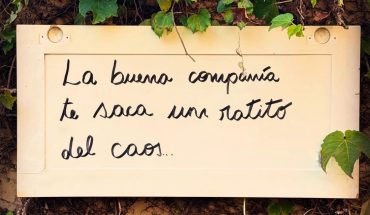 La buena compañía
te saca un ratito
del caos...